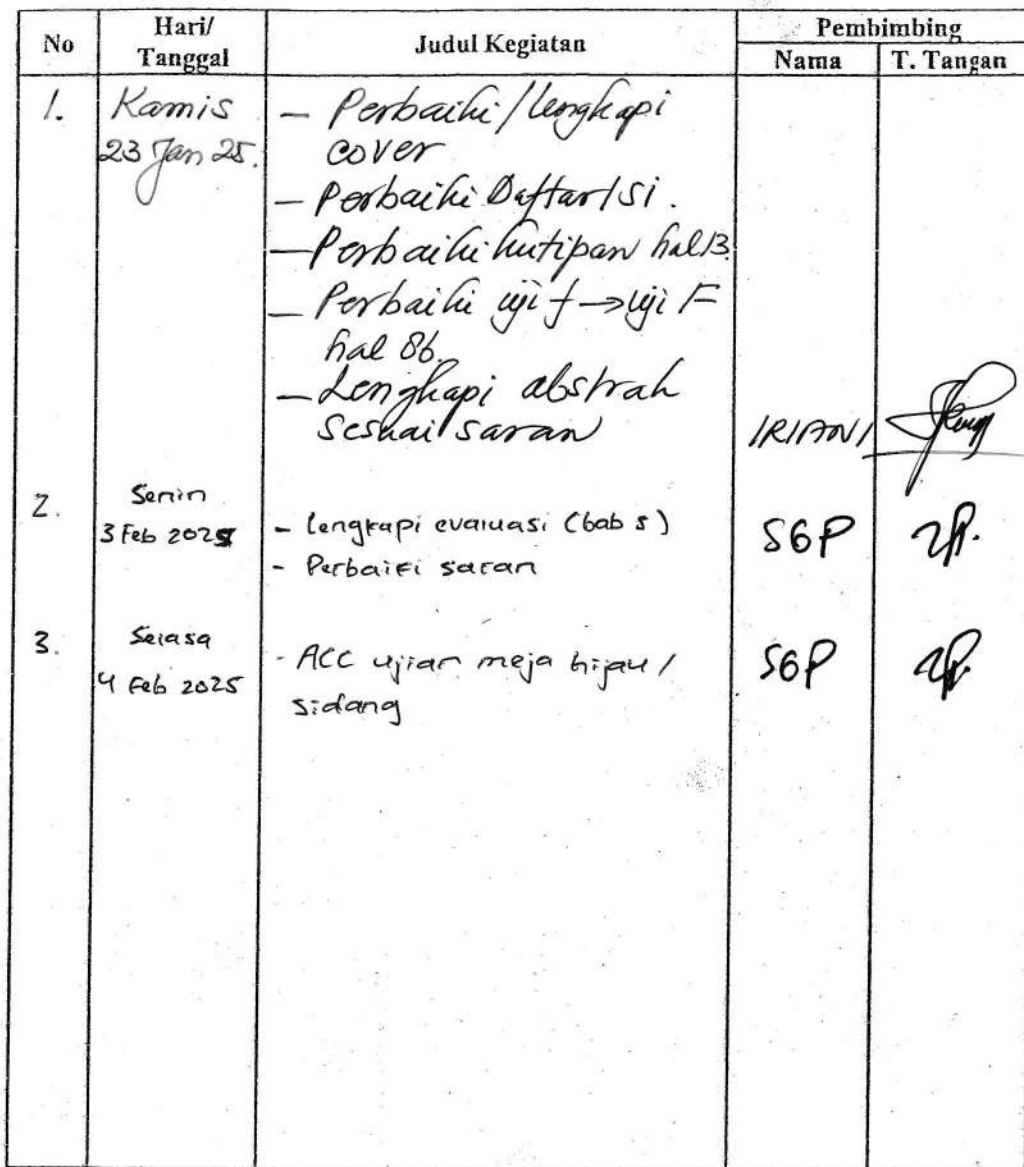 No Hari/ Tanggal Judul Kegiatan Pembimbing
Nama T. Tangan
1. Kamis - Perbaiki/lengkapi
23 Jan 25. cover
- Perbaiki Daftar Isi.
- Perbaiki kutipan hal 13.
- Perbaiki uji f → uji F
hal 86.
- Lengkapi abstrak
sesuai saran IRIANI
2. Senin
3 Feb 2025 - lengkapi evaluasi (bab 5) SGP
- Perbaiki saran
3. Selasa
4 Feb 2025 - ACC ujian meja hijau / SGP
sidang